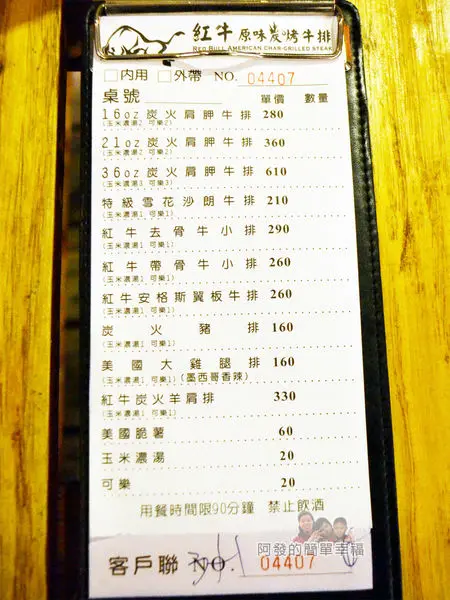 紅牛 原味炭烤牛排
RED BULL AMERICAN CHAR-GRILLED STEAK
□內用 □外帶 NO. 04407
桌號 單價 數量
16oz炭火肩胛牛排 280
(玉米濃湯2 可樂2)
21oz炭火肩胛牛排 360
(玉米濃湯2 可樂2)
36oz炭火肩胛牛排 610
(玉米濃湯3 可樂3)
特級雪花沙朗牛排 210
(玉米濃湯1 可樂1)
紅牛去骨牛小排 290
(玉米濃湯1 可樂1)
紅牛帶骨牛小排 260
(玉米濃湯1 可樂1)
紅牛安格斯翼板牛排 260
(玉米濃湯1 可樂1)
炭火豬排 160
(玉米濃湯1 可樂1)
美國大雞腿排 160
(玉米濃湯1 可樂1)(墨西哥香辣)
紅牛炭火羊肩排 330
(玉米濃湯1 可樂1)
美國脆薯 60
玉米濃湯 20
可樂 20
用餐時間限90分鐘 禁止飲酒
阿發的簡單幸福
客戶聯 NO. 04407